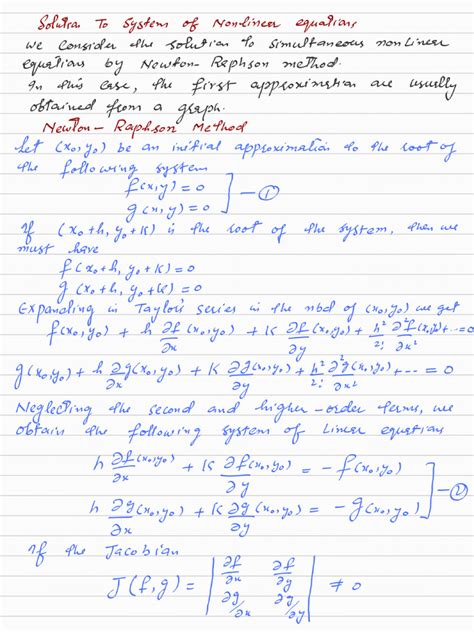 Solution To System of Nonlinear equations
We consider the solution to simultaneous nonlinear
equations by Newton-Raphson method.
In this case, the first approximation are usually
obtained from a graph.
Newton-Raphson Method
Let (x₀,y₀) be an initial approximation to the root of
the following system
f(x,y)=0
g(x,y)=0 ] —①
If (x₀+h, y₀+k) is the root of the system, then we
must have
f(x₀+h, y₀+k)=0
g(x₀+h, y₀+k)=0
Expanding in Taylor's series in the nbd of (x₀,y₀) we get
f(x₀,y₀) + h ∂f/∂x (x₀,y₀) + k ∂f/∂y (x₀,y₀) + h²/2! ∂²f/∂x² (x₀,y₀)+ --- =0
g(x₀,y₀) + h ∂g/∂x (x₀,y₀) + k ∂g/∂y (x₀,y₀) + h²/2! ∂²g/∂x² (x₀,y₀)+ --- = 0
Neglecting the second and higher-order terms, we
obtain the following system of linear equations
h ∂f/∂x (x₀,y₀) + k ∂f/∂y (x₀,y₀) = -f(x₀,y₀)
h ∂g/∂x (x₀,y₀) + k ∂g/∂y (x₀,y₀) = -g(x₀,y₀) ] —②
If the Jacobian
J(f,g) = | ∂f/∂x ∂f/∂y |
| ∂g/∂x ∂g/∂y | ≠ 0